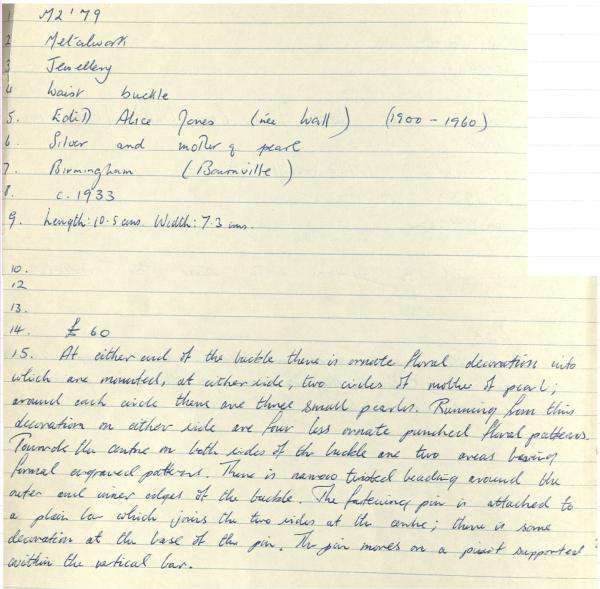 1 M2'79
2 Metalwork
3 Jewellery
4 Waist buckle
5. Edith Alice Jones (née Wall) (1900 - 1960)
6. Silver and mother of pearl
7. Birmingham (Bournville)
8. c. 1933
9. Length: 10.5 cms. Width: 7.3 cms.
10.
12
13.
14. £ 60
15. At either end of the buckle there is ornate floral decoration into
which are mounted, at either side, two circles of mother of pearl;
around each circle there are three small pearls. Running from this
decoration on either side are four less ornate punched floral patterns.
Towards the centre on both sides of the buckle are two areas bearing
formal engraved patterns. There is narrow twisted beading around the
outer and inner edges of the buckle. The fastening pin is attached to
a plain bar which joins the two sides at the centre; there is some
decoration at the base of the pin. The pin moves on a pivot supported
within the vertical bar.